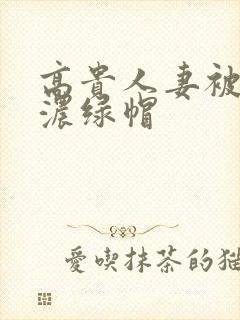 高貴人妻被
濃绿帽
愛喫抹茶的猫